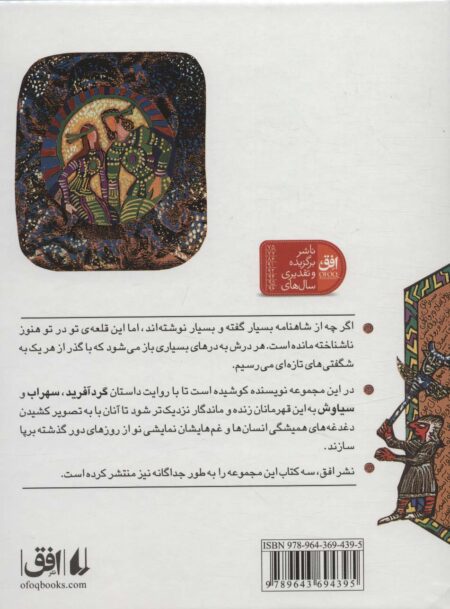 ناشر
برگزیده
و تقدیری
سال‌های
افق
OFOQ
اگر چه از شاهنامه بسیار گفته و بسیار نوشته‌اند، اما این قلعه‌ی تو در تو هنوز
ناشناخته مانده است. هر درش به درهای بسیاری باز می‌شود که با گذر از هر یک به
شگفتی‌های تازه‌ای می‌رسیم.
در این مجموعه نویسنده کوشیده است تا با روایت داستان گردآفرید، سهراب و
سیاوش به این قهرمانان زنده و ماندگار نزدیک‌تر شود تا آنان با به تصویر کشیدن
دغدغه‌های همیشگی انسان‌ها و غم‌هایشان نمایشی نو از روزهای دور گذشته برپا
سازند.
نشر افق، سه کتاب این مجموعه را به طور جداگانه نیز منتشر کرده است.
ISBN 978-964-369-439-5
9 789643 694395
افق
نشر
ofoqbooks.com